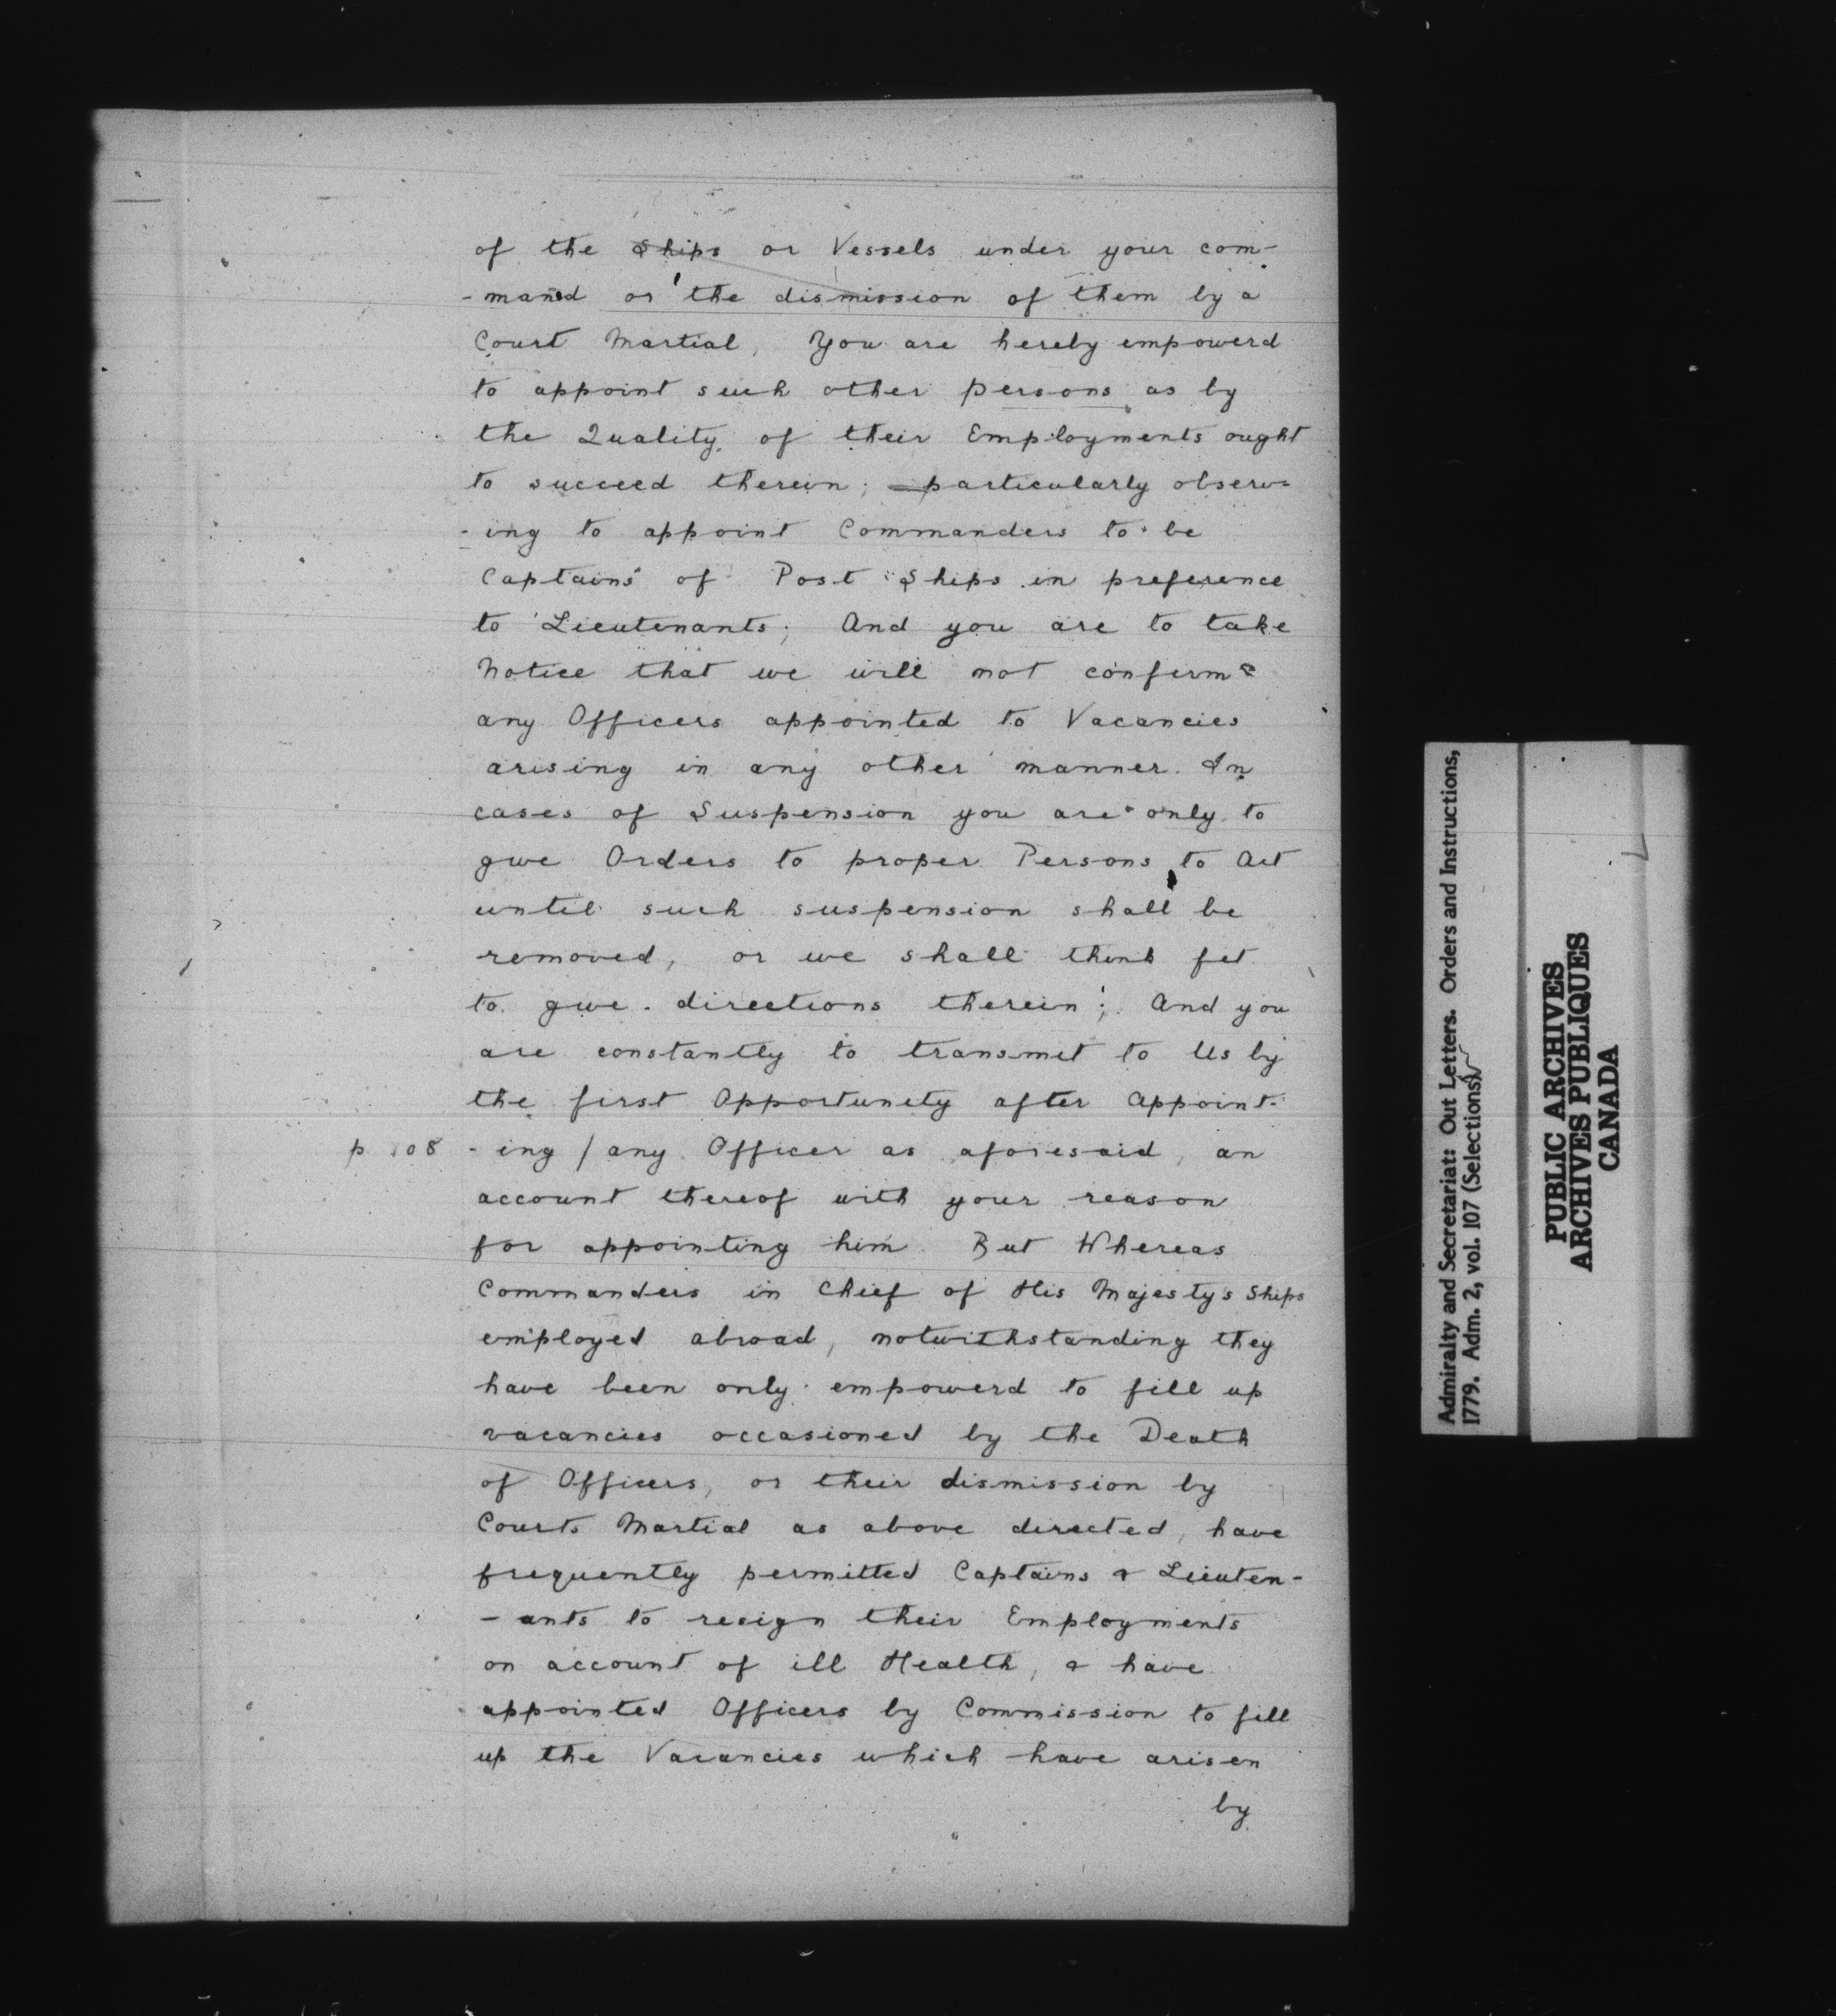 of the Ships or Vessels under your com-
-mand or the dismission of them by a
Court Martial, You are hereby empowerd
to appoint such other persons as by
the Quality of their Employments ought
to succeed therein; particularly observ-
-ing to appoint Commanders to be
Captains of Post Ships in preference
to Lieutenants; And you are to take
Notice that we will not confirm
any Officers appointed to Vacancies
arising in any other manner. In
cases of Suspension you are only to
give Orders to proper Persons to Act
until such suspension shall be
removed, or we shall think fit
to give directions therein; And you
are constantly to transmit to Us by
the first Opportunity after Appoint-
p 108 -ing / any Officer as aforesaid, an
account thereof with your reason
for appointing him. But Whereas
Commanders in Chief of His Majesty's Ships
employed abroad, notwithstanding they
have been only empowerd to fill up
vacancies occasioned by the Death
of Officers, or their dismission by
Courts Martial as above directed, have
frequently permitted Captains & Lieuten-
-ants to resign their Employments
on account of ill Health, & have
appointed Officers by Commission to fill
up the Vacancies which have arisen
by
Admiralty and Secretariat: Out Letters. Orders and Instructions,
1779. Adm. 2, vol. 107 (Selections)
PUBLIC ARCHIVES
ARCHIVES PUBLIQUES
CANADA